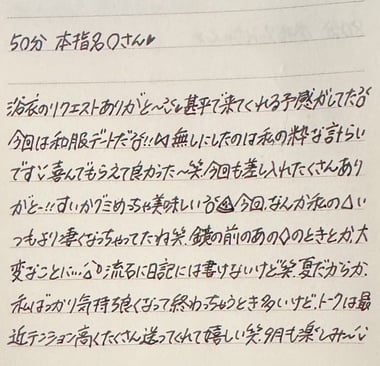 50分 本指名〇さん♥
浴衣のリクエストありがと〜!甚平で来てくれる予感がしてた
今回は和服デート!!⋈無しにしたのは私の粋な計らい
です 喜んでもらえて良かった〜笑 今回も差し入れたくさんあり
がと〜!!すいかグミめっちゃ美味しい 今回、なんか私の△い
つもより凄くなっちゃってたね笑、鏡の前のあの◇のときとか、大
変なことに… 流石に日記には書けないけど笑、夏だからか、
私ばっかり気持ち良くなって終わっちゃうとき多いけど、トークは最
近テンション高くたくさん送ってくれて嬉しい笑、9月も楽しみ〜